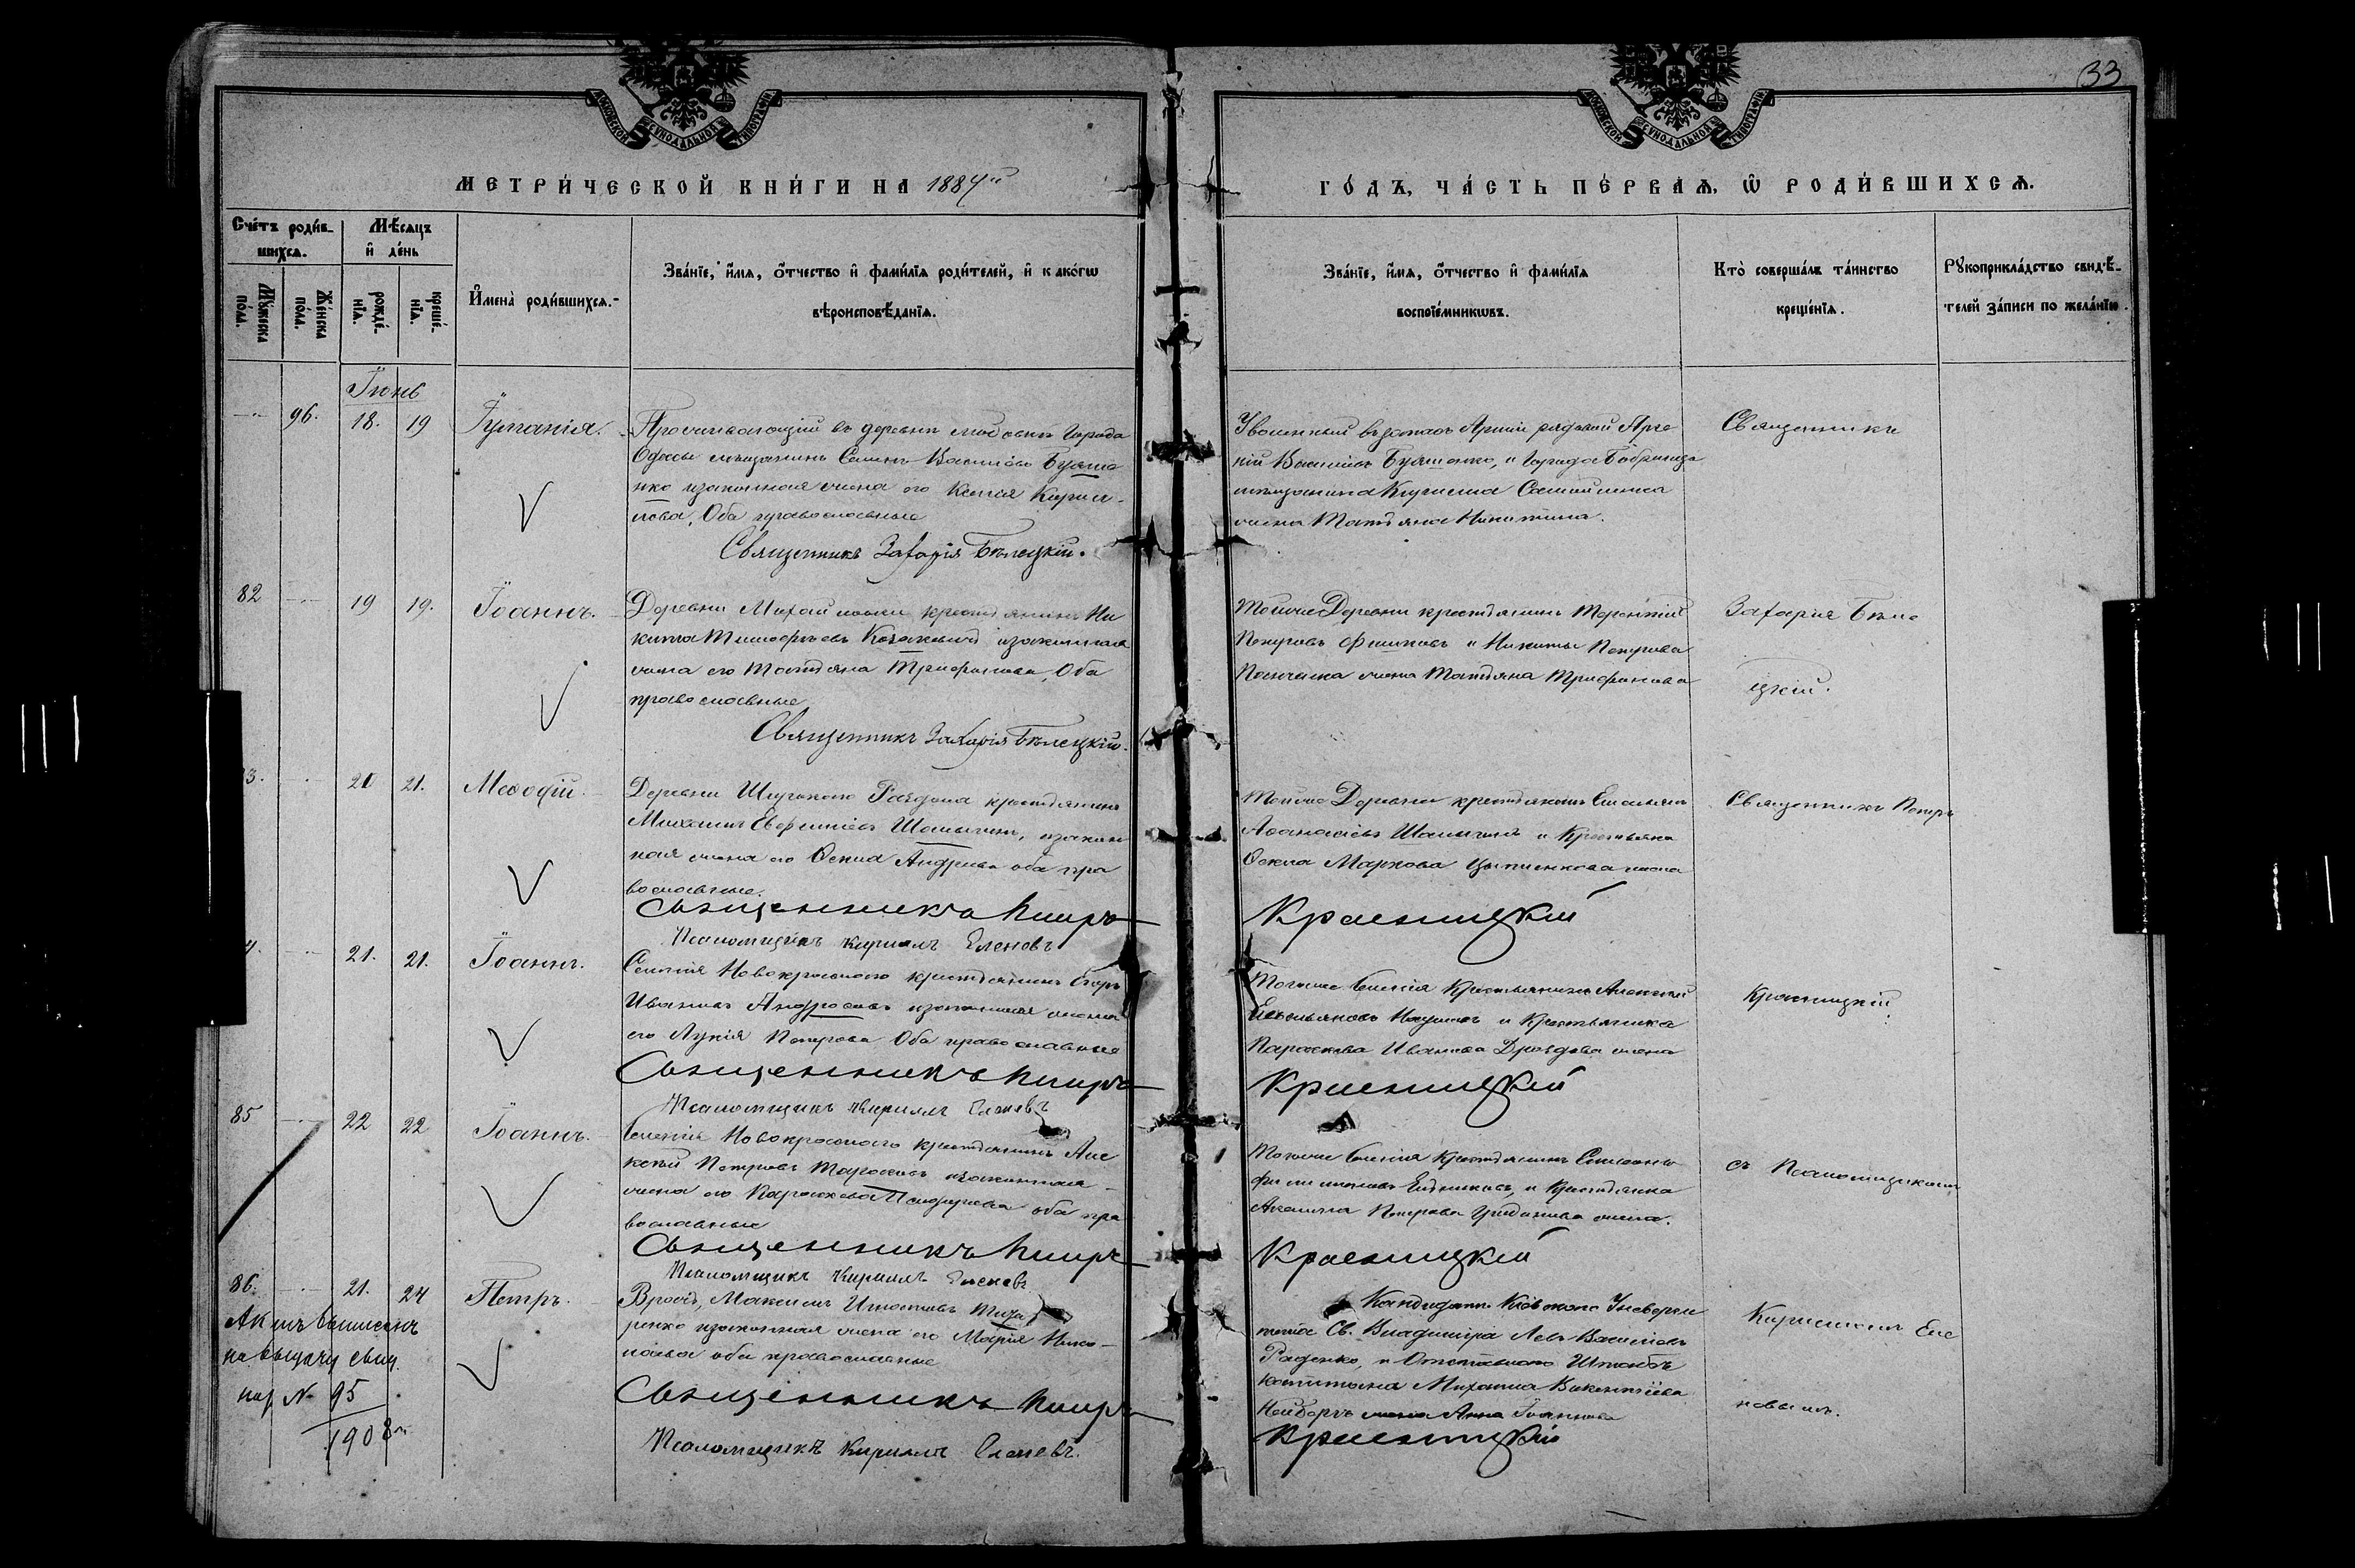 33
МОСКОВСКОЙ СѴНОДАЛЬНОЙ ТИПОГРАФІИ
МОСКОВСКОЙ СѴНОДАЛЬНОЙ ТИПОГРАФІИ
МЕТРИ́ЧЕСКОЙ КНИ́ГИ НА 1884й
ГО́ДЪ, ЧА́СТЬ ПЕ́РВАѦ, Ѡ҆ РОДИ́ВШИХСѦ.
Сче́тъ роди́в-
шихсѧ.
Мѣ́сѧцъ
и҆ де́нь
Мꙋ́жеска по́ла.
Же́нска по́ла.
рожде́-нїѧ.
креще́-нїѧ.
И҆мена̀ роди́вшихсѧ.
Зва́нїе, и҆́мѧ, ѻ҆́тчество и҆ фами́лїѧ роди́телей, и҆ како́гѡ
вѣроисповѣ́данїѧ.
Зва́нїе, и҆́мѧ, ѻ҆́тчество и҆ фами́лїѧ
воспрїе́мникѡвъ.
Кто̀ соверша́лъ та́инство
креще́нїѧ.
Рꙋкоприкла́дство свидѣ́-
телей за́писи по жела́нїю.
Іюнь
96. 18. 19
Проживающій въ деревнѣ города
Одессы мѣщанинъ Василіевъ
законная жена его Ксенія Кирил-
лова, Оба православные
Священникъ Захарія Бѣлецкій.
Уволенный въ запасъ Арміи рядовой
Василіевъ и города Бобринца
мѣщанина
жена Татьяна Никитина.
Священникъ
82 19 19. Іоаннъ.
Деревни крестьянинъ Ни
кита Тимофѣевъ законная
жена его Татьяна Трифонова, Оба
православные
Священникъ Захарія Бѣлецкій.
Тойже Деревни крестьянинъ Терентій
Петровъ и Никиты Петрова
жена Татьяна Трифонова
Захарія Бѣле
цкій.
3. 20 21. Меѳодій.
Деревни крестьянинъ
Михаилъ законн
ная жена его Андреева оба пра
вославные.
Священникъ Петръ
Псаломщикъ Кириллъ Еленевъ
Тойже Деревни крестьянинъ Емельянъ
Аѳанасіевъ и Крестьянка
Маркова жена
Красницкій
Священникъ Петръ
4. 21. 21. Іоаннъ.
Селенія Новокраснаго крестьянинъ Егоръ
Ивановъ законная жена
его Лукія Петрова Оба православные
Священникъ Петръ
Псаломщикъ Кириллъ Еленевъ
Тогоже Селенія Крестьянинъ Алексѣй
Емельяновъ и Крестьянка
Параскева Иванова Дроздова жена
Красницкій
Красницкій
85 22 22 Іоаннъ.
Селенія Новокраснаго крестьянинъ Але
ксѣй Петровъ законная
жена его Параскева оба пра
вославные
Священникъ Петръ
Псаломщикъ Кириллъ Еленевъ
Тогоже Селенія Крестьянинъ
и Крестьянка
Петрова жена.
Красницкій
съ Псаломщикомъ
86. 21. 24 Петръ.
Актъ выписанъ
на выдачу свид.
№ 95
1908
Врачъ, Максимъ Игнатьевъ
законная жена его Марія Нико-
лаева оба православные
Священникъ Петръ
Псаломщикъ Кириллъ Еленевъ.
Кандидатъ Кіевскаго Универси
тета Св. Владиміра Левъ Василіевъ
и Отставнаго Штабсъ
капитана Михаила Викентіева
жена Анна Іоаннова
Красницкій
Кирилломъ Еле
невымъ.